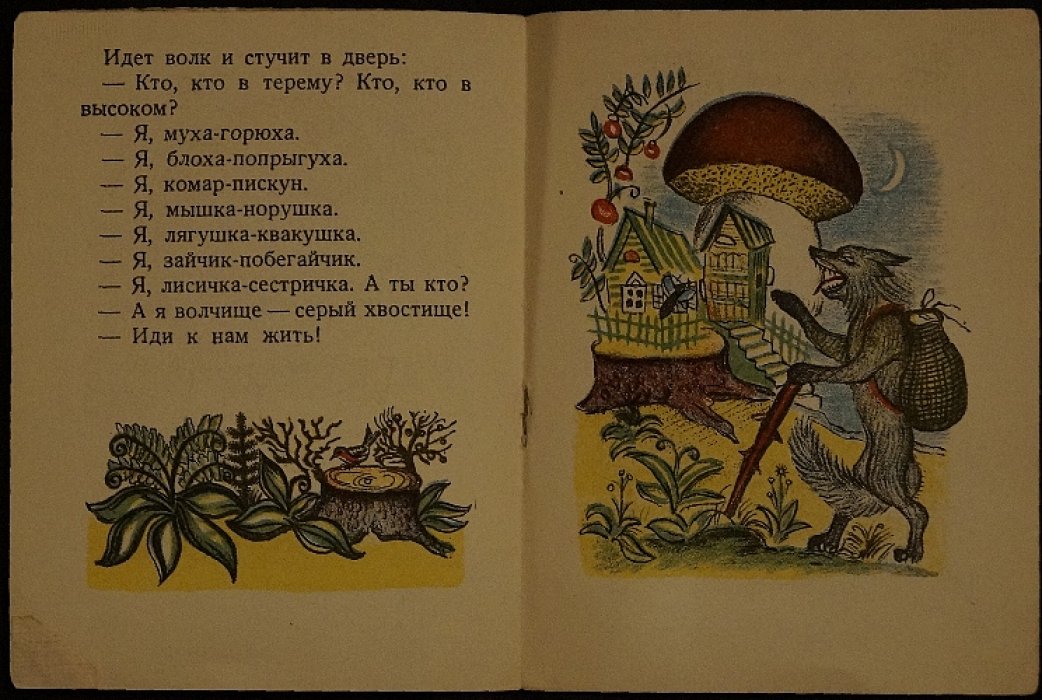 Идет волк и стучит в дверь:
— Кто, кто в терему? Кто, кто в
высоком?
— Я, муха-горюха.
— Я, блоха-попрыгуха.
— Я, комар-пискун.
— Я, мышка-норушка.
— Я, лягушка-квакушка.
— Я, зайчик-побегайчик.
— Я, лисичка-сестричка. А ты кто?
— А я волчище — серый хвостище!
— Иди к нам жить!